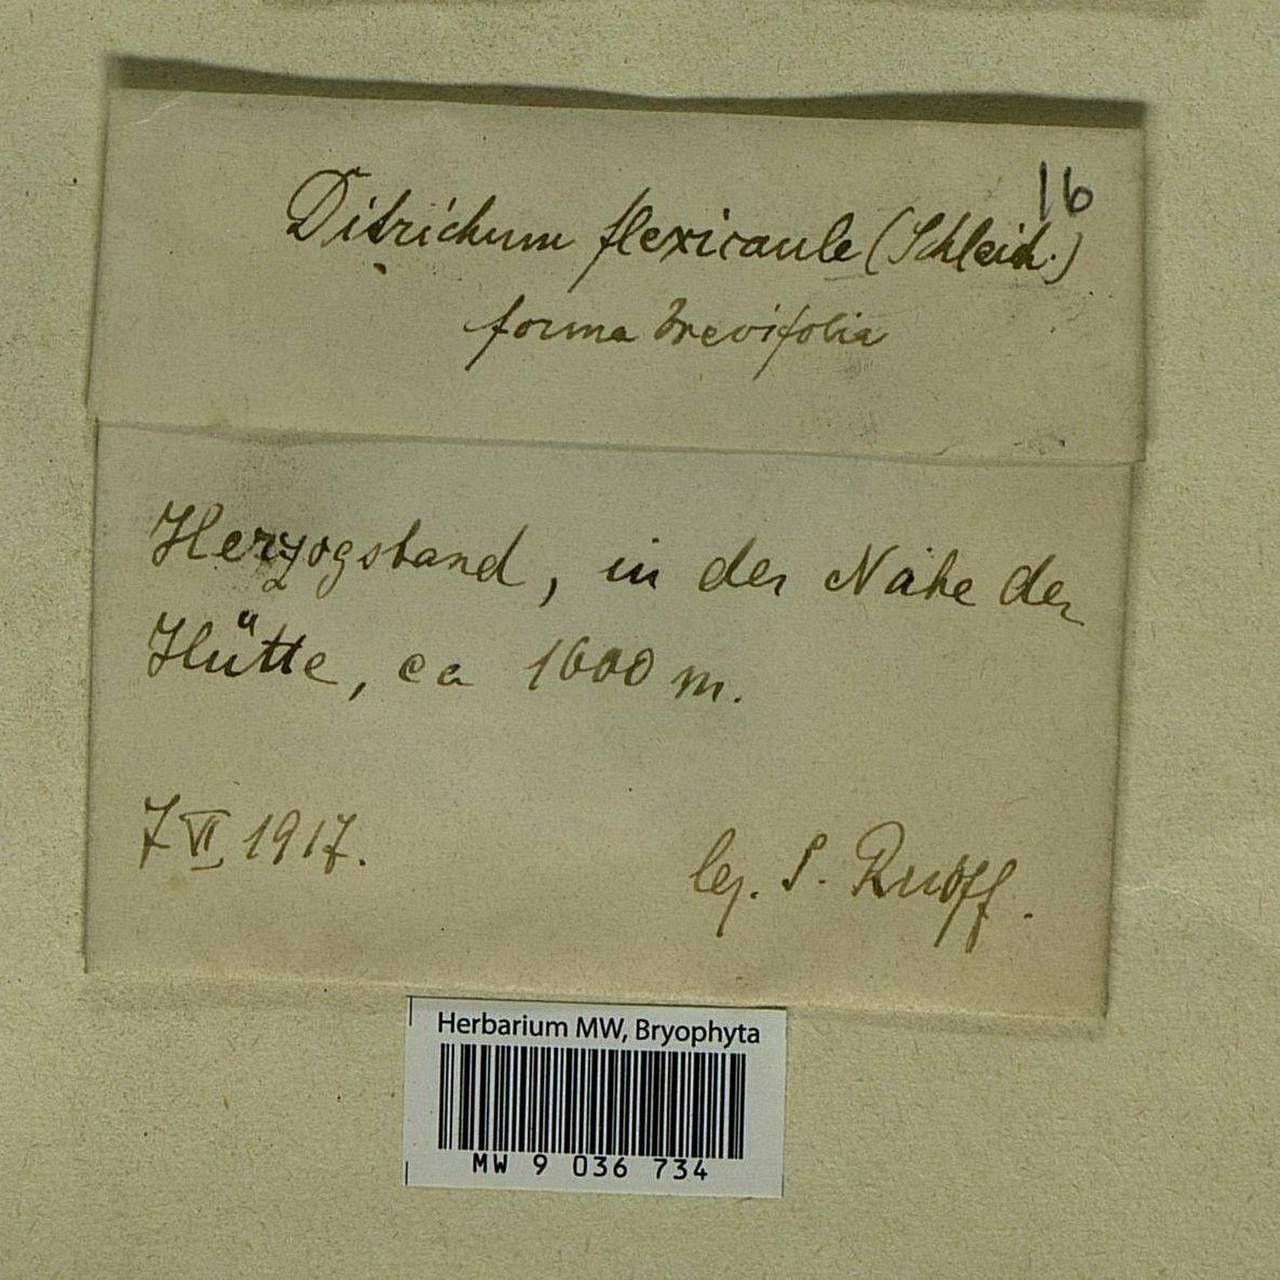 16
Ditrichum flexicaule (Schleich.)
forma brevifolia
Herzogstand, in der Nähe der
Hütte, ca 1600 m.
7 VI 1917.
leg. S. Ruoff.
Herbarium MW, Bryophyta
MW 9 036 734